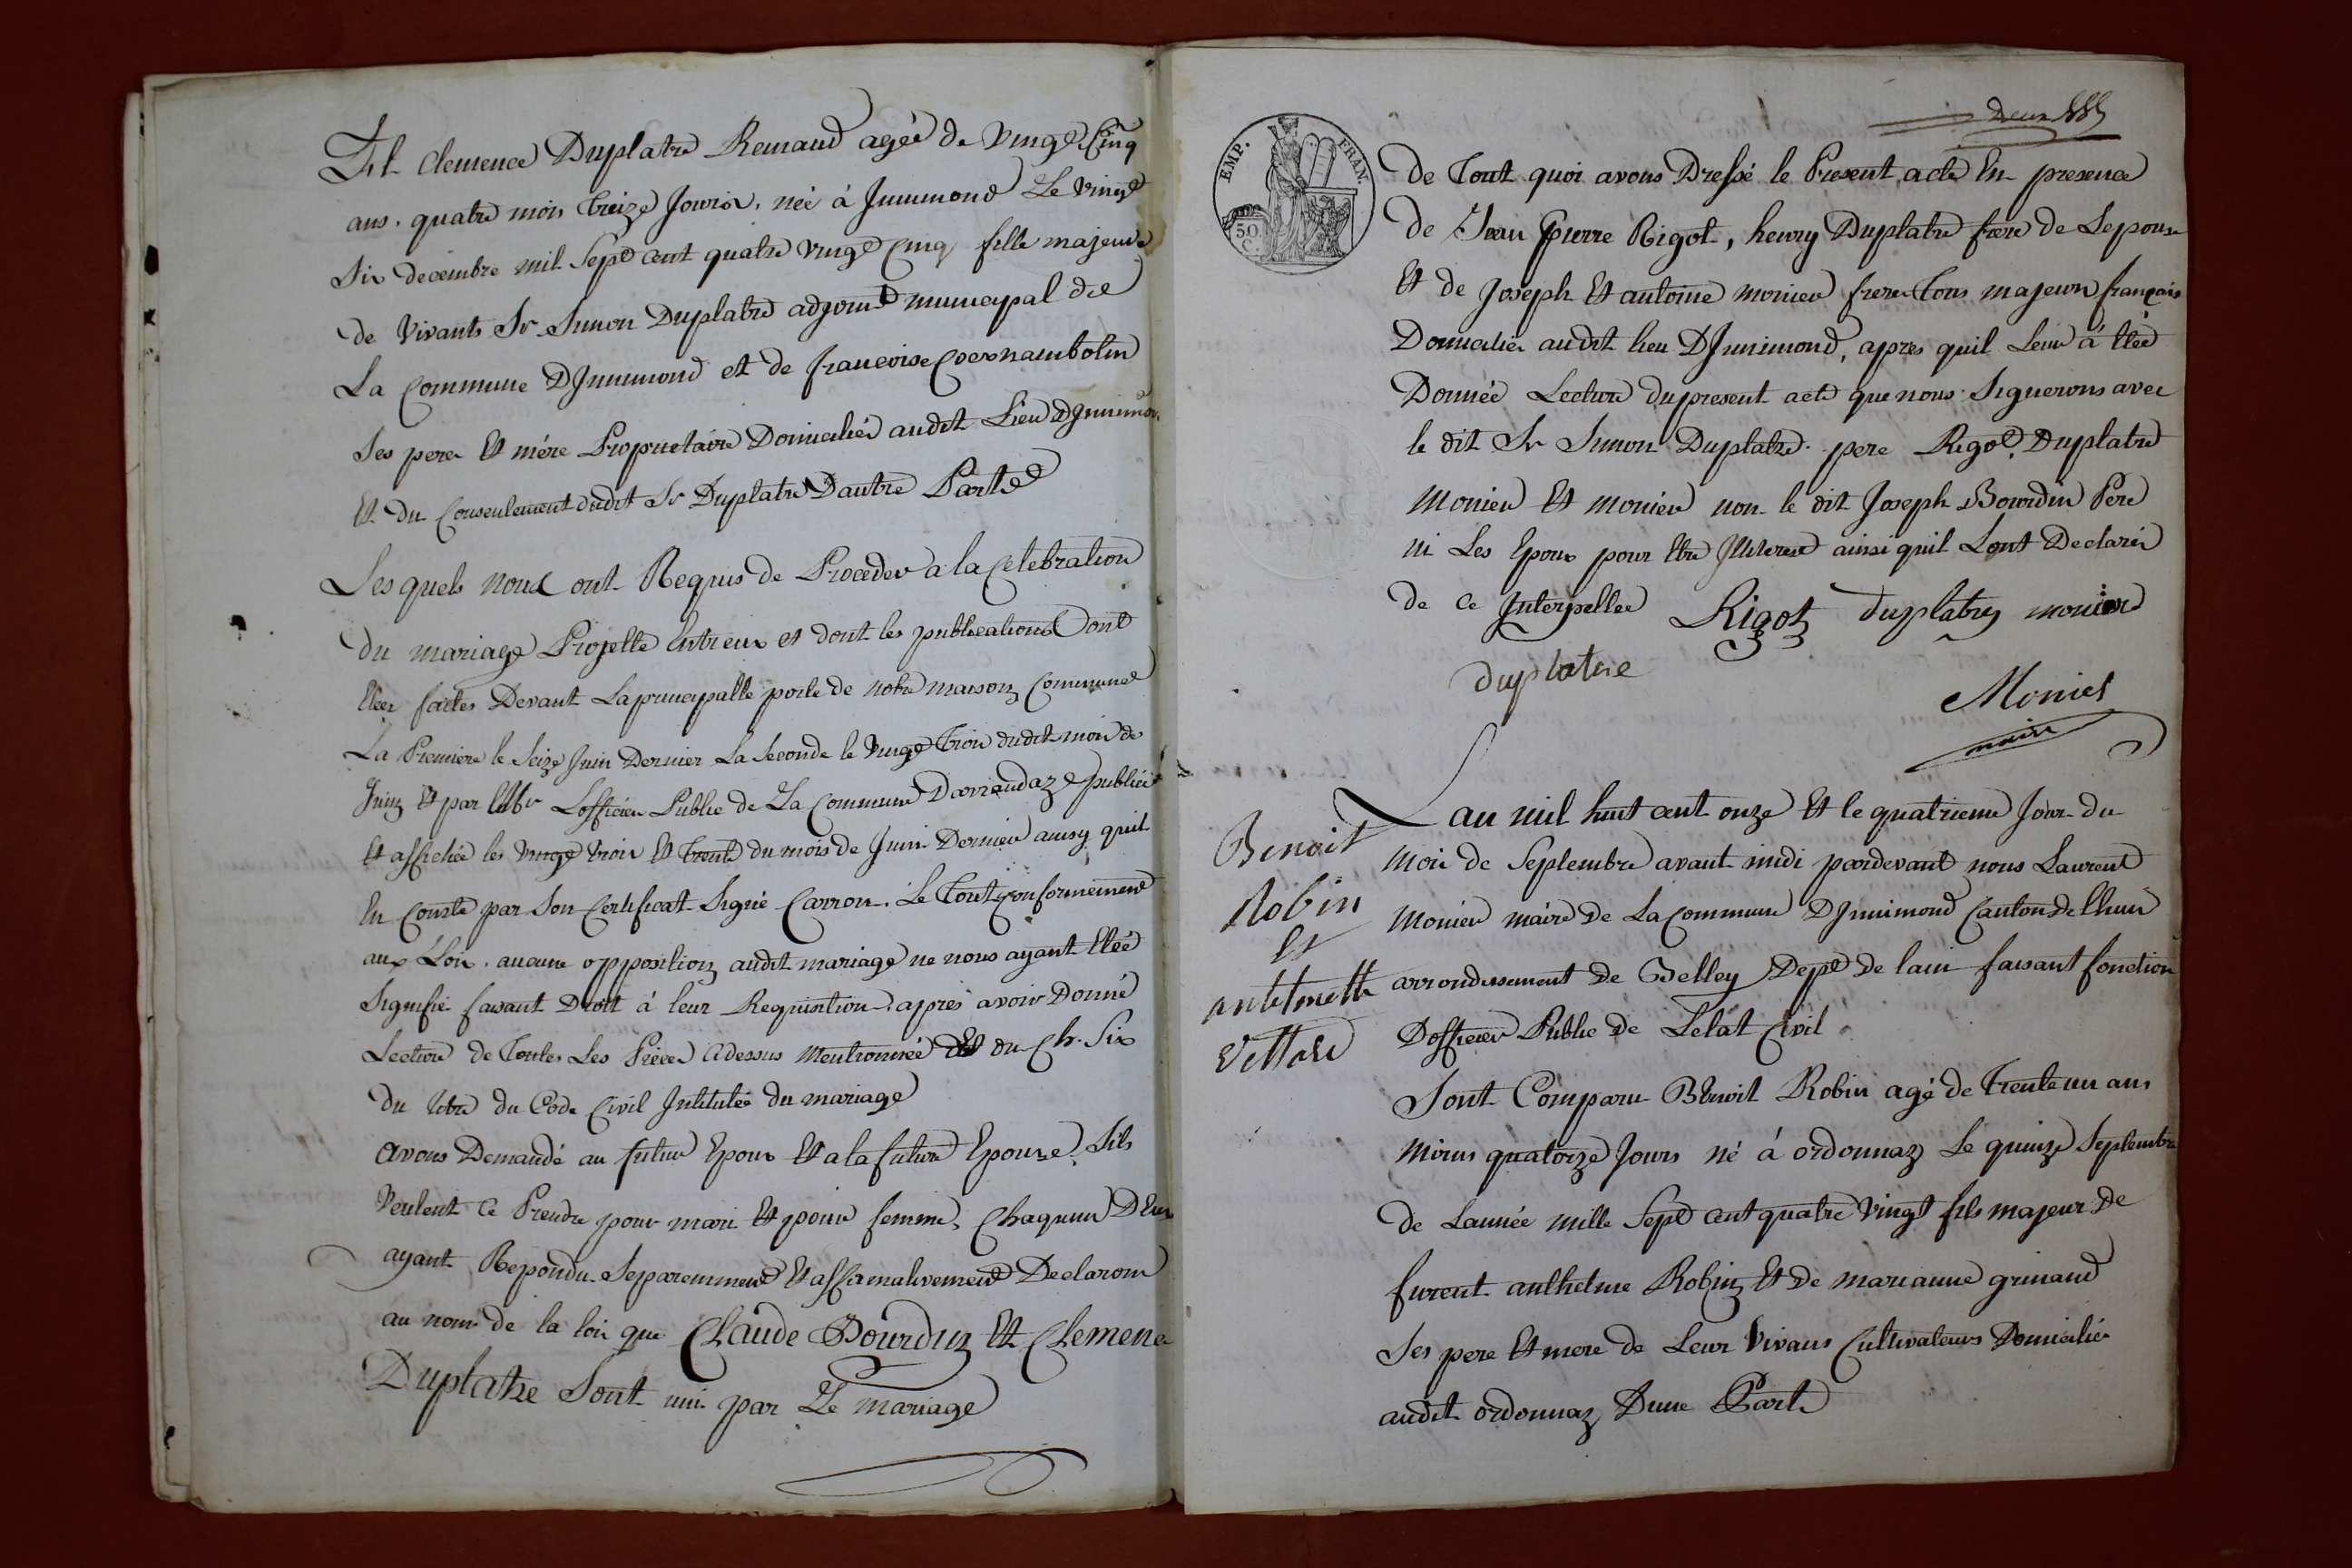 Et Clemence Duplatre Renaud agée de vingt Cinq
ans. quatre mois treize Jours. née á Innimond Le vingt
Six decembre mil Sept cent quatre vingt Cinq fille majeure
de vivants Sr Simon Duplatre adjoint municipal de
La Commune DInnimond et de francoise
Ses pere Et mére Proprietaire Domicilies audit Lieu DInnimon
Et du Consentement dudit Sr Duplatre Dautre Parted
Lesquels nous ont Requis de Proceder a la Celebration
du mariage Projette Entreux et dont les publications Ont
Etees faites Devant La principalle porte de notre maison Commune
La Premiere le Seize Juin Dernier La Seconde le vingt trois dudit mois de
Juin Et par Lofficier Public de La Commune publiée
Et affichée les vingt trois Et trente du mois de Juin Dernier ainsy quil
En Conste par Son Certificat Signé Carron. Le Tout Conformement
aux Loix. aucune opposition audit mariage ne nous ayant Etéé
Signifié faisant Droit á leur Requisition. apres avoir Donné
Lecture de Toutes Les Pièces Cidessus Mentionnée Et du Ch. Six
du titre du Code Civil Intitulée du mariage
avons Demandé au futur Epoux Et a la future Epouse, Sils
Veulent Ce Prendre pour mari Et pour femme, Chaquun DEux
ayant Repondu Separemment Et affirmativement Declarons
au nom de la loi que Claude Bourdin Et Clemence
Duplatre Sont uni par Le mariage
Deux
EMP. FRAN.
50 C.
de Tout quoi avons Dressé le Present acte En presence
de Jean Pierre Rigot, henry Duplatre frere de Lepouse
Et de Joseph Et antoine monier freres Tous majeurs français
Domicilies audit lieu DInnimond, apres quil Leur á Etéé
Donnée Lecture du present acte que nous Signerons avec
le dit Sr Simon Duplatre pere Rigot, Duplatre
Monier Et monier non le dit Joseph Bourdin Pere
ni Les Epoux pour Etre Illiteres ainsi quil Lont Declarés
de Ce Interpelles Rigot duplatre monier
duplatre
Monier
maire
Benoit
Robin
Et
antelmette
Vettard
Lan mil huit cent onze Et le quatrieme Jour du
mois de Septembre avant midi pardevant nous Laurent
Monier maire de La Commune DInnimond Canton de lhuis
arrondissement de Belley Dept de lain faisant fonction
Dofficier Public de Letat Civil
Sont Comparu Benoit Robin agé de Trente un ans
moins quatorze Jours né á ordonnaz Le quinze Septembre
de Lannée mille Sept cent quatre vingt fils majeur de
furent anthelme Robin Et de marianne grinand
Ses pere Et mere de Leur vivans Cultivateurs Domicilies
audit ordonnaz Dune Part